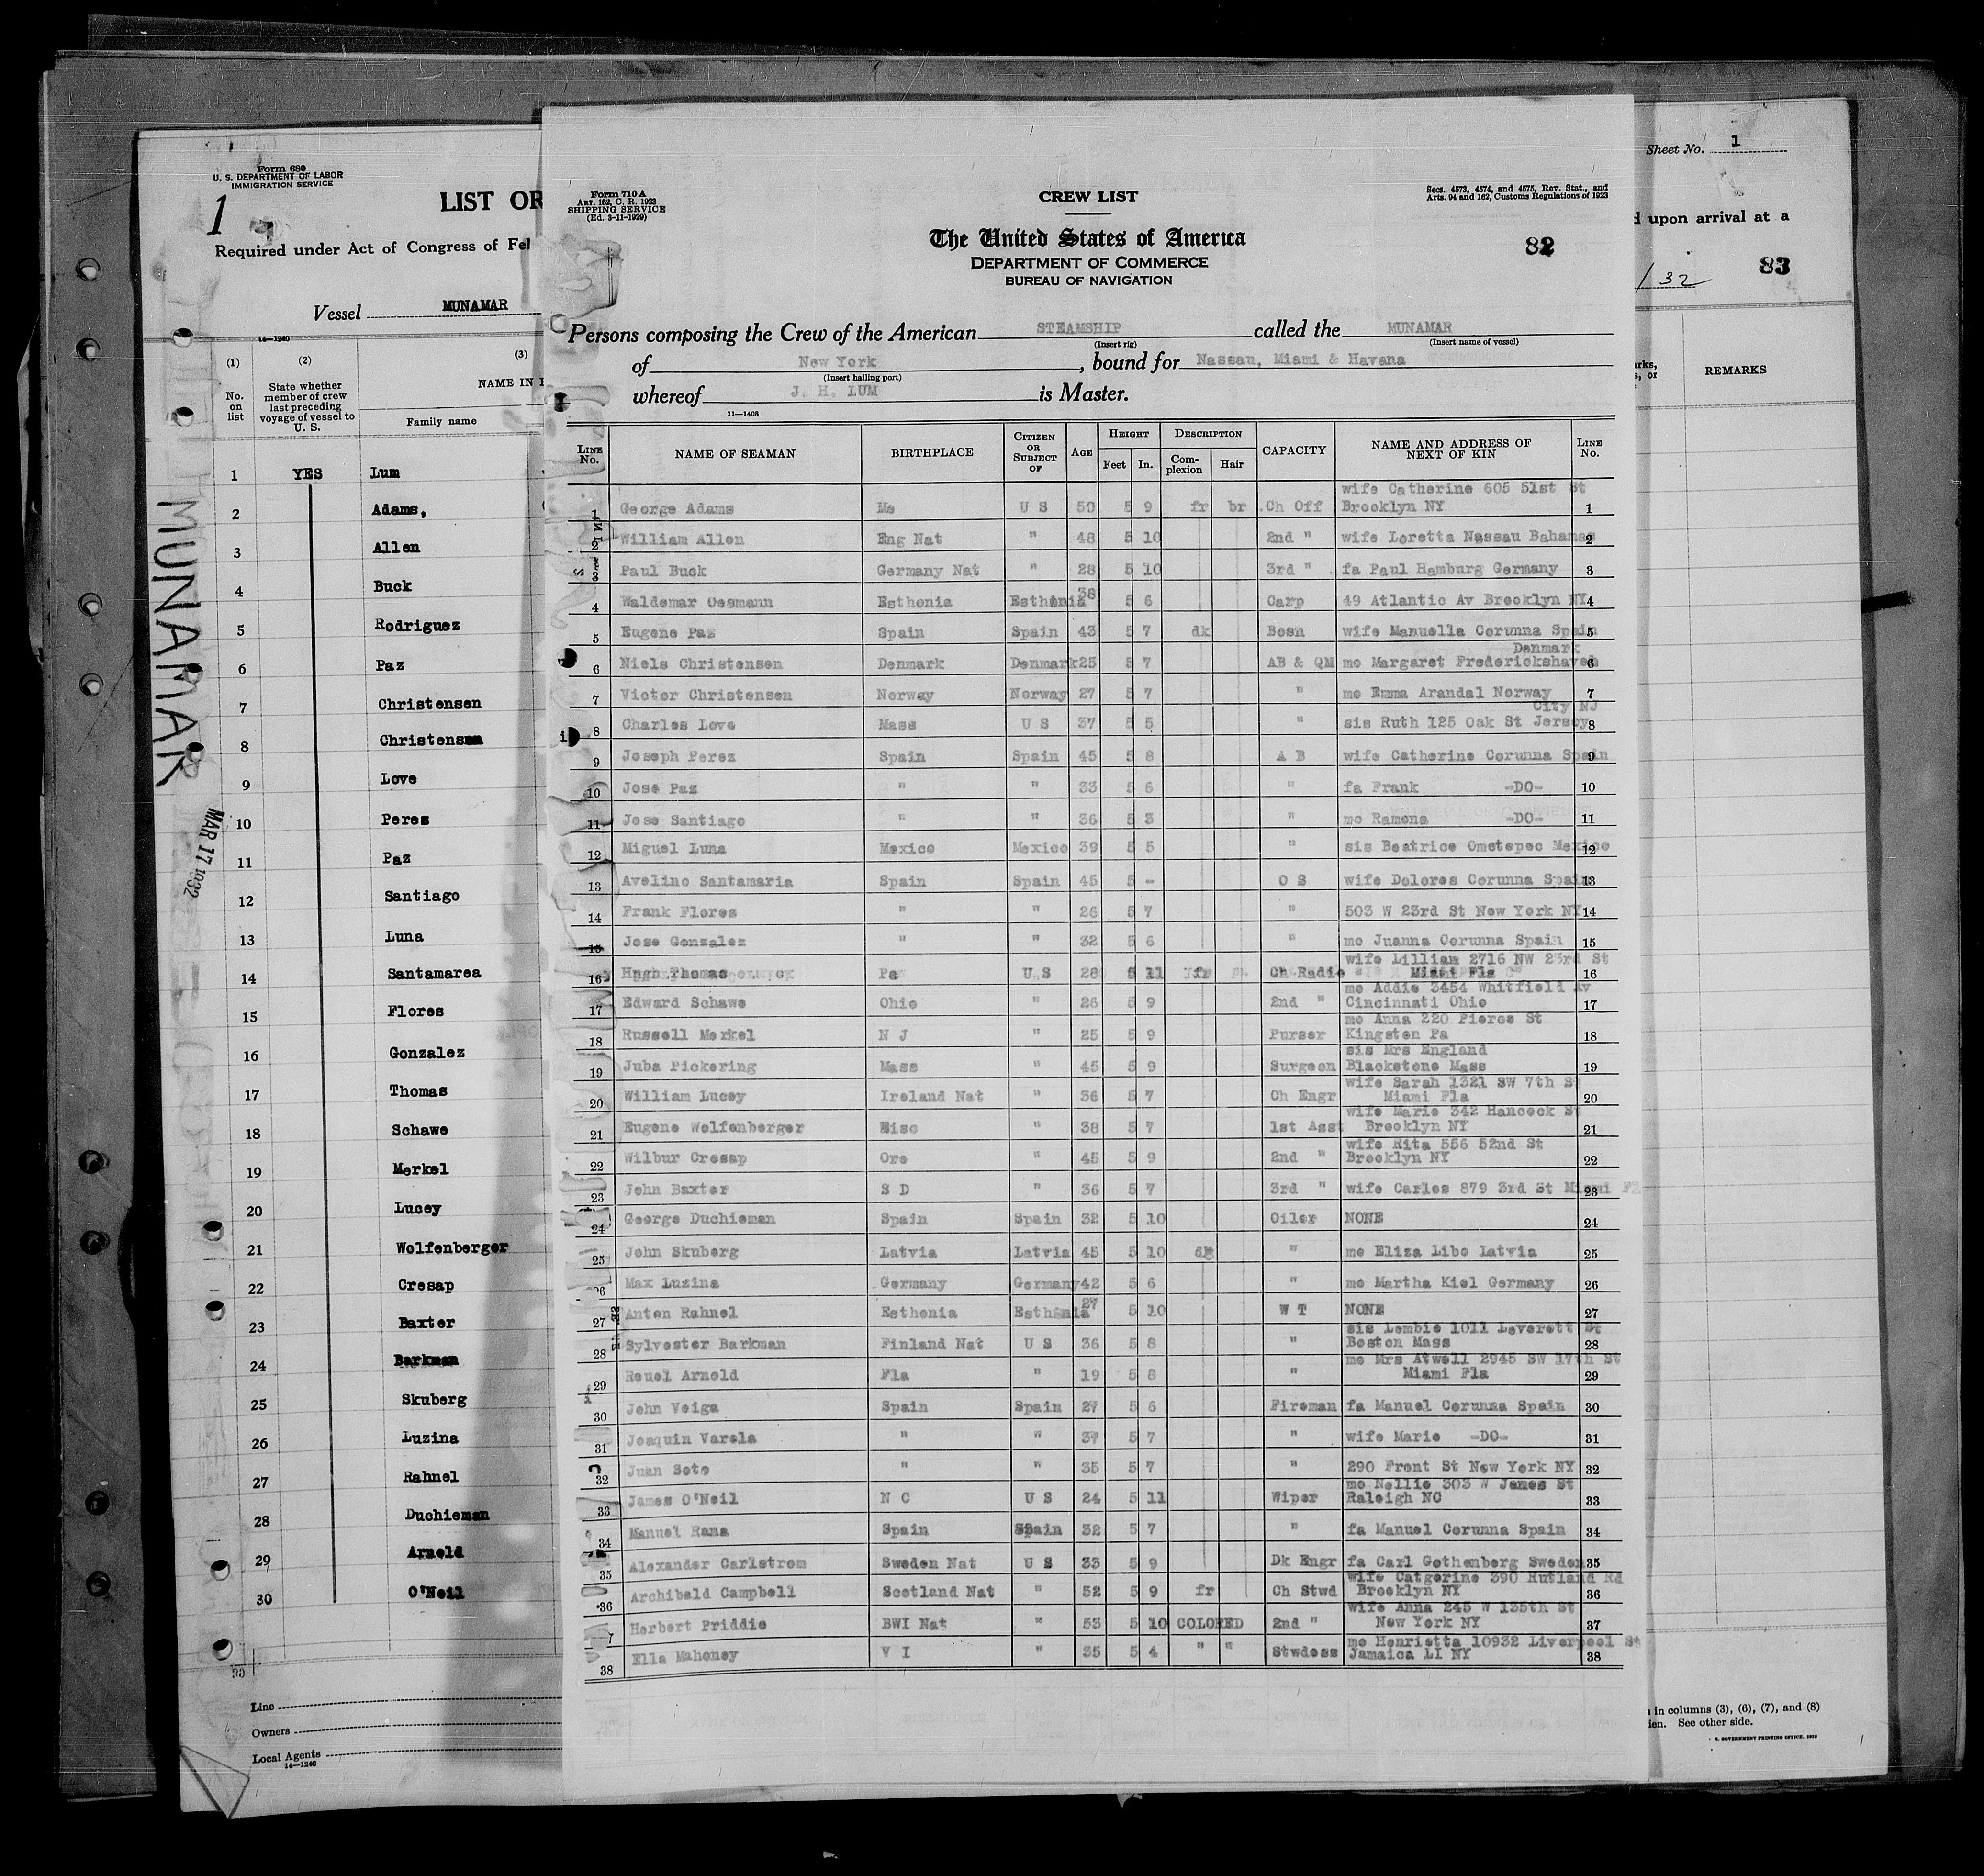 Form 680
U. S. DEPARTMENT OF LABOR
IMMIGRATION SERVICE
1
LIST OR
Required under Act of Congress of Fel
Vessel MUNAMAR
14—1240
(1) (2) (3)
No. on list
State whether member of crew last preceding voyage of vessel to U. S.
NAME IN F
Family name
1 YES Lum
2 Adams,
3 Allen
4 Buck
5 Rodriguez
6 Paz
7 Christensen
8 Christensen
9 Love
10 Perez
11 Paz
12 Santiago
13 Luna
14 Santamarea
15 Flores
16 Gonzalez
17 Thomas
18 Schawe
19 Merkel
20 Lucey
21 Wolfenberger
22 Cresap
23 Baxter
24 Barkman
25 Skuberg
26 Luzina
27 Rahnel
28 Duchieman
29 Arnold
30 O'Neil
Line
Owners
Local Agents
14—1240
MUNAMAR
MAR 17 1932
Form 710 A
ART. 162, C. R. 1923
SHIPPING SERVICE
(Ed. 3-11-1929)
CREW LIST
Secs. 4573, 4574, and 4575, Rev. Stat., and
Arts. 94 and 162, Customs Regulations of 1923
The United States of America
DEPARTMENT OF COMMERCE
BUREAU OF NAVIGATION
82
Persons composing the Crew of the American STEAMSHIP called the MUNAMAR
(Insert rig) (Insert name of vessel)
of New York, bound for Nassau, Miami & Havana
(Insert hailing port)
whereof J. H. LUM is Master.
11—1408
LINE No. NAME OF SEAMAN BIRTHPLACE CITIZEN OR SUBJECT OF AGE HEIGHT Feet In. DESCRIPTION Complexion Hair CAPACITY NAME AND ADDRESS OF NEXT OF KIN LINE No.
1 George Adams Me U S 50 5 9 fr br Ch Off wife Catherine 605 51st St Brooklyn NY 1
2 William Allen Eng Nat " 48 5 10 2nd " wife Loretta Nassau Bahamas 2
3 Paul Buck Germany Nat " 28 5 10 3rd " fa Paul Hamburg Germany 3
4 Waldemar Oesmann Esthonia Esthonia 38 5 6 Carp 49 Atlantic Av Brooklyn NY 4
5 Eugene Paz Spain Spain 43 5 7 dk Bosn wife Manuella Corunna Spain 5
6 Niels Christensen Denmark Denmark 25 5 7 AB & QM mo Margaret Frederickshaven Denmark 6
7 Victor Christensen Norway Norway 27 5 7 " mo Emma Arandal Norway 7
8 Charles Love Mass U S 37 5 5 " sis Ruth 125 Oak St Jersey City NJ 8
9 Joseph Perez Spain Spain 45 5 8 A B wife Catherine Corunna Spain 9
10 Jose Paz " " 33 5 6 " fa Frank -DO- 10
11 Jose Santiago " " 36 5 3 " mo Ramona -DO- 11
12 Miguel Luna Mexico Mexico 39 5 5 " sis Beatrice Ometepec Mexico 12
13 Avelino Santamaria Spain Spain 45 5 - O S wife Dolores Corunna Spain 13
14 Frank Flores " " 26 5 7 " 503 W 23rd St New York NY 14
15 Jose Gonzalez " " 32 5 6 " mo Juanna Corunna Spain 15
16 Hugh Thomas Pa U S 28 5 11 fr Ch Radio wife Lillian 2716 NW 23rd St Miami Fla 16
17 Edward Schawe Ohio " 26 5 9 2nd " mo Addie 3454 Whitfield Av Cincinnati Ohio 17
18 Russell Merkel N J " 25 5 9 Purser mo Anna 220 Pierce St Kingston Pa 18
19 Juba Pickering Mass " 45 5 9 Surgeon sis Mrs England Blackstone Mass 19
20 William Lucey Ireland Nat " 36 5 7 Ch Engr wife Sarah 1321 SW 7th St Miami Fla 20
21 Eugene Wolfenberger Wisc " 38 5 7 1st Asst wife Marie 342 Hancock St Brooklyn NY 21
22 Wilbur Cresap Ore " 45 5 9 2nd " wife Rita 556 52nd St Brooklyn NY 22
23 John Baxter S D " 36 5 7 3rd " wife Carlos 879 3rd St Miami Fl 23
24 George Duchieman Spain Spain 32 5 10 Oiler NONE 24
25 John Skuberg Latvia Latvia 45 5 10 dk " mo Eliza Libo Latvia 25
26 Max Luzina Germany Germany 42 5 6 " mo Martha Kiel Germany 26
27 Anton Rahnel Esthonia Esthonia 27 5 10 W T NONE 27
28 Sylvester Barkman Finland Nat U S 36 5 8 " sis Lembie 1011 Leverett St Boston Mass 28
29 Reuel Arnold Fla " 19 5 8 " mo Mrs Atwell 2945 SW 17th St Miami Fla 29
30 John Veiga Spain Spain 27 5 6 Fireman fa Manuel Corunna Spain 30
31 Joaquin Varela " " 37 5 7 " wife Marie -DO- 31
32 Juan Soto " " 35 5 7 " 290 Front St New York NY 32
33 James O'Neil N C U S 24 5 11 Wiper mo Nellie 303 W James St Raleigh NC 33
34 Manuel Rana Spain Spain 32 5 7 " fa Manuel Corunna Spain 34
35 Alexander Carlstrom Sweden Nat U S 33 5 9 Dk Engr fa Carl Gothenberg Sweden 35
36 Archibald Campbell Scotland Nat " 52 5 9 fr Ch Stwd wife Catgerine 390 Rutland Rd Brooklyn NY 36
37 Herbert Priddie BWI Nat " 53 5 10 COLORED 2nd " wife Anna 245 W 135th St New York NY 37
38 Ella Mahoney V I " 35 5 4 " " Stwdess mo Henrietta 10932 Liverpool St Jamaica LI NY 38
Sheet No. 1
d upon arrival at a
/ 32
83
REMARKS
in columns (3), (6), (7), and (8)
ien. See other side.
GOVERNMENT PRINTING OFFICE